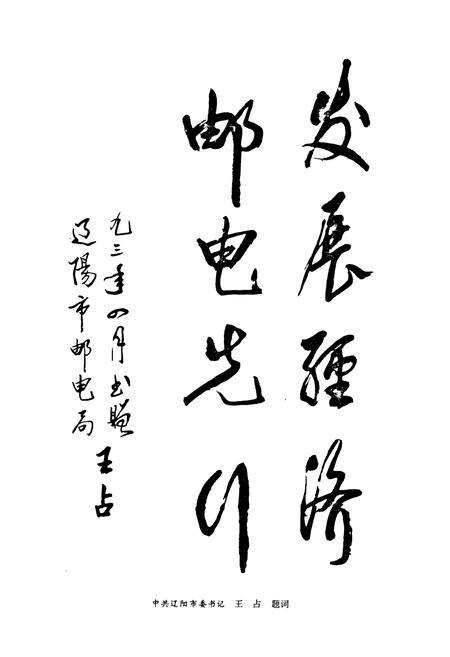 发展经济
邮电先行
九三年四月书赠
辽陽市邮电局
王占
中共辽阳市委书记 王占 题词